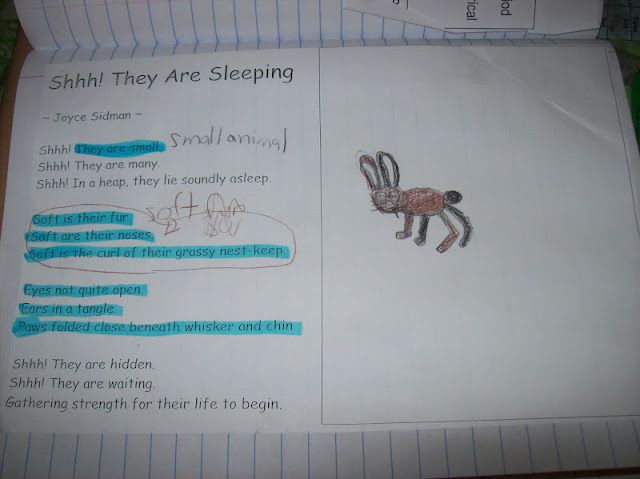 iod
rical
Shhh! They Are Sleeping
~ Joyce Sidman ~
Shhh! They are small. small animal
Shhh! They are many.
Shhh! In a heap, they lie soundly asleep.
Soft is their fur. soft
Soft are their noses.
Soft is the curl of their grassy nest-keep.
Eyes not quite open.
Ears in a tangle.
Paws folded close beneath whisker and chin.
Shhh! They are hidden.
Shhh! They are waiting.
Gathering strength for their life to begin.